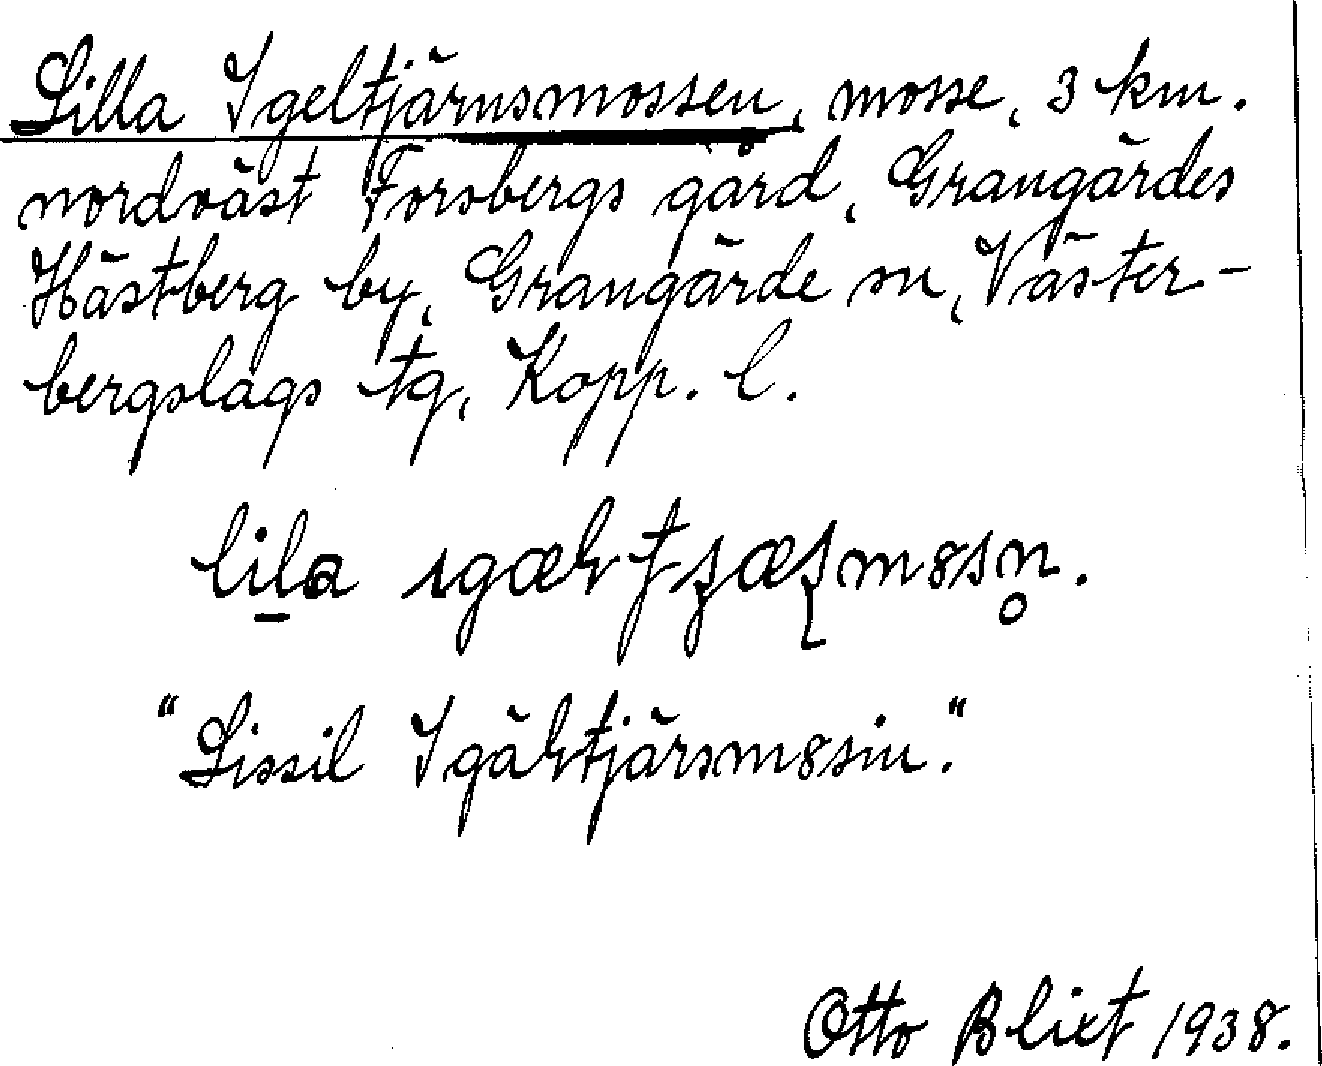 Lilla Igeltjärnsmossen, mosse, 3 km.
nordväst Forsbergs gård, Grangärdes
Hästberg by, Grangärde sn, Väster-
bergslags tg, Kopp. l.
"Lissil Igäłtjärsm8sin."
Otto Blixt 1938.